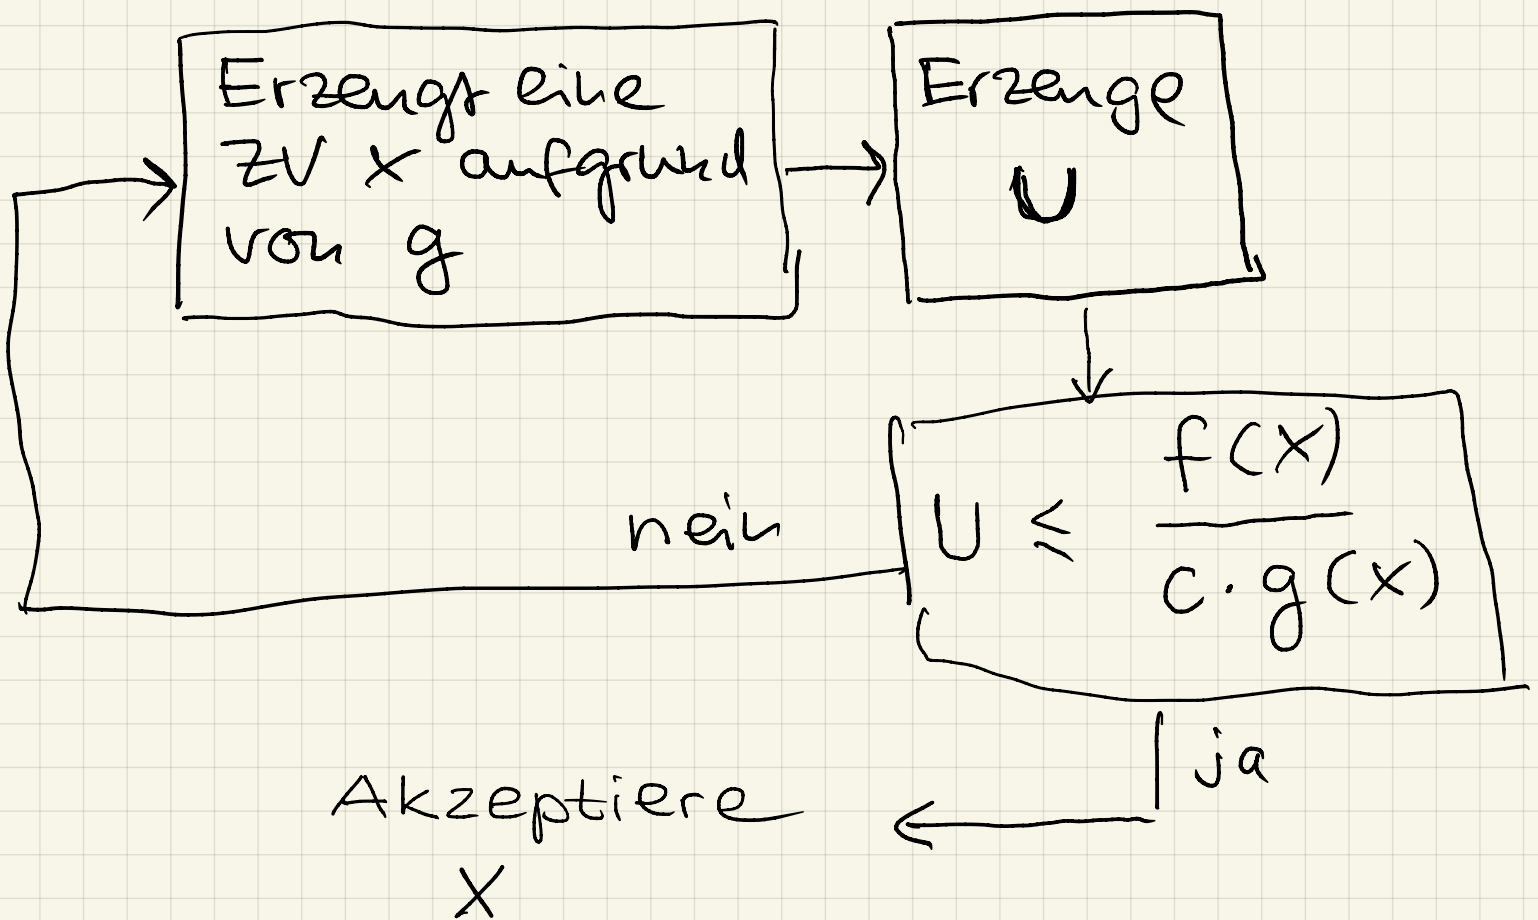 Erzeugt eine
ZV X aufgrund
von g
Erzeuge
U
U ≤ f(X)
c · g(X)
nein
ja
Akzeptiere
X